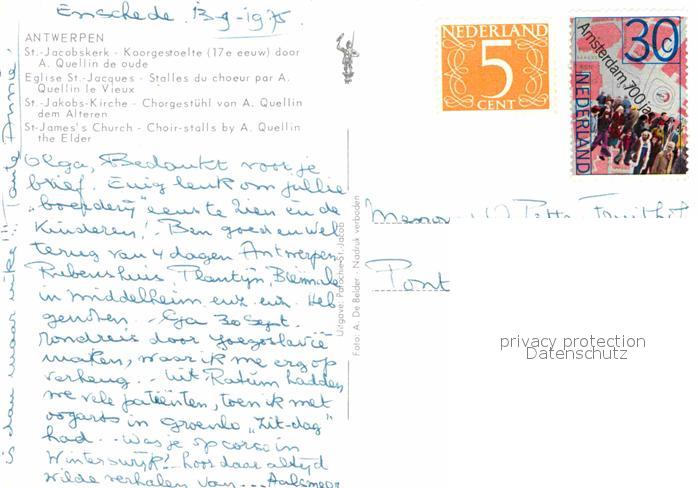 Enschede. 13-9-1975
ANTWERPEN
St.-Jacobskerk - Koorgestoelte (17e eeuw) door
A. Quellin de oude
Eglise St.-Jacques - Stalles du chœur par A.
Quellin le Vieux
St.-Jakobs-Kirche - Chorgestühl von A. Quellin
dem Alteren
St-James's Church - Choir-stalls by A. Quellin
the Elder
Olga, Bedankt voor je
brief. Enig leuk om jullie
"boerderij" eens te zien en de
Kinderen! Ben goed en wel
terug van 4 dagen Antwerpen
Rubenshuis, Plantijn, Biënnale
in Middelheim enz. enz. Heb
genoten. - Ga 30 Sept.
rondreis door Joegoslavië
maken, waar ik me erg op
verheug. - Uit Ratum hadden
we vele patiënten, toen ik met
oogarts in Groenlo "Zit-dag"
had. - Was je op corso in
Winterswijk? hoor daar altijd
wilde verhalen van ... Aalsmeer
is dan maar niks!!! Tante Annie.
Uitgave: Parochie St. Jacob
Foto: A. De Belder - Nadruk verboden
NEDERLAND
5
CENT
30c
Amsterdam 700 ja
NEDERLAND
Pont
privacy protection
Datenschutz